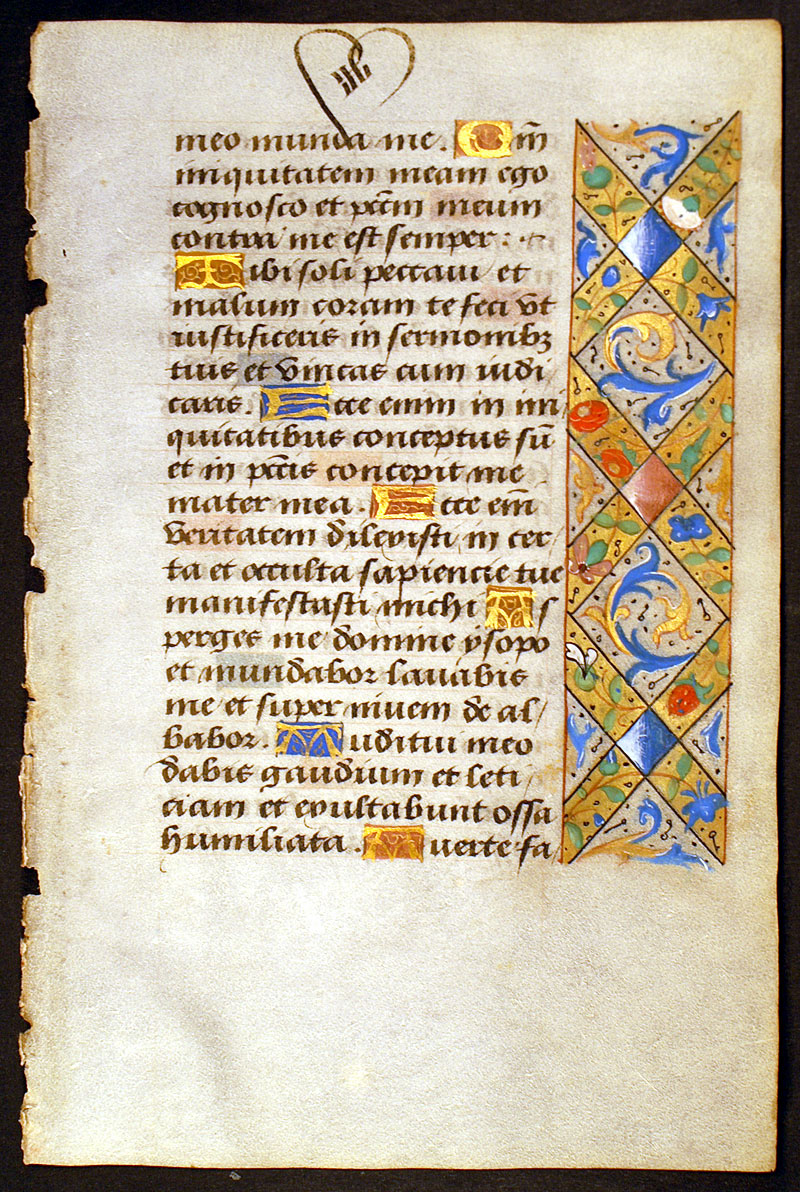 meo munda me. Qm̄
iniquitatem meam ego
cognosco et pctm̄ meum
contra me est semper:
Tibi soli peccavi et
malum coram te feci vt
iustificeris in sermonibꝫ
tuis et vincas cum iudi
caris. Ecce enim in ini
quitatibus conceptus sū
et in pctīs concepit me
mater mea. Ecce em̄
veritatem dilexisti in cer
ta et occulta sapiencie tue
manifestasti michi As
perges me domine ysopo
et mundabor lavabis
me et super nivem de al/
babor. Auditui meo
dabis gaudium et leti
ciam et exultabunt ossa
humiliata. Averte fa